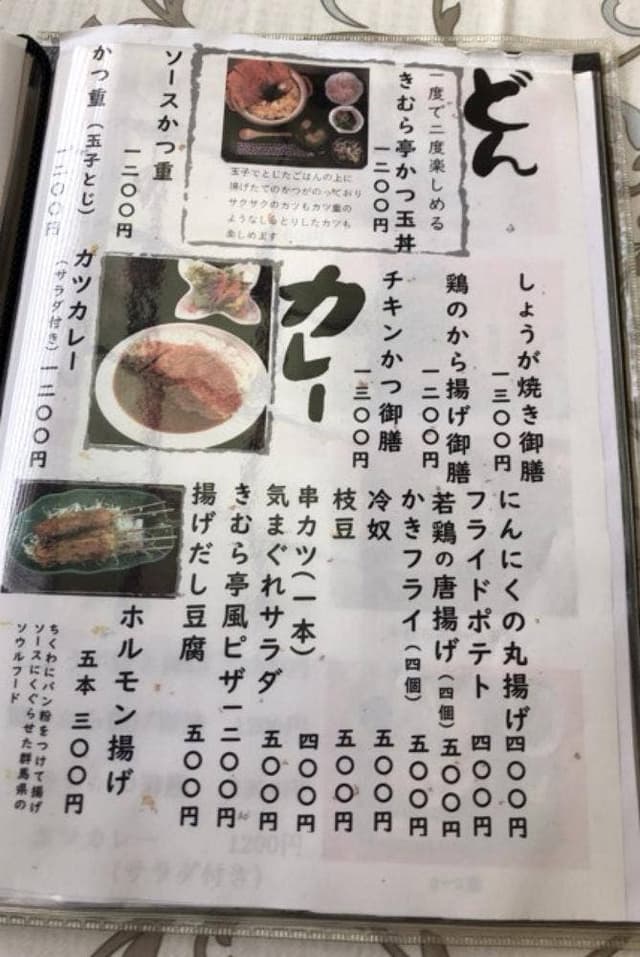 どん
一度で二度楽しめる
きむら亭かつ玉丼
一二〇〇円
玉子でとじたごはんの上に
揚げたてのかつがのっており
サクサクのカツもカツ重の
ようなしっとりしたカツも
楽しめます
ソースかつ重
一二〇〇円
かつ重(玉子とじ)
一二〇〇円
しょうが焼き御膳
一三〇〇円
鶏のから揚げ御膳
一二〇〇円
チキンかつ御膳
一三〇〇円
カレー
カツカレー
(サラダ付き)一二〇〇円
にんにくの丸揚げ 四〇〇円
フライドポテト 四〇〇円
若鶏の唐揚げ(四個)五〇〇円
かきフライ(四個) 五〇〇円
冷奴 五〇〇円
枝豆 五〇〇円
串カツ(一本) 四〇〇円
気まぐれサラダ 五〇〇円
きむら亭風ピザ 一二〇〇円
揚げだし豆腐 五〇〇円
ホルモン揚げ
五本 三〇〇円
ちくわにパン粉をつけて揚げ
ソースにくぐらせた群馬県の
ソウルフード
カツカレー 1200円
(サラダ付き)